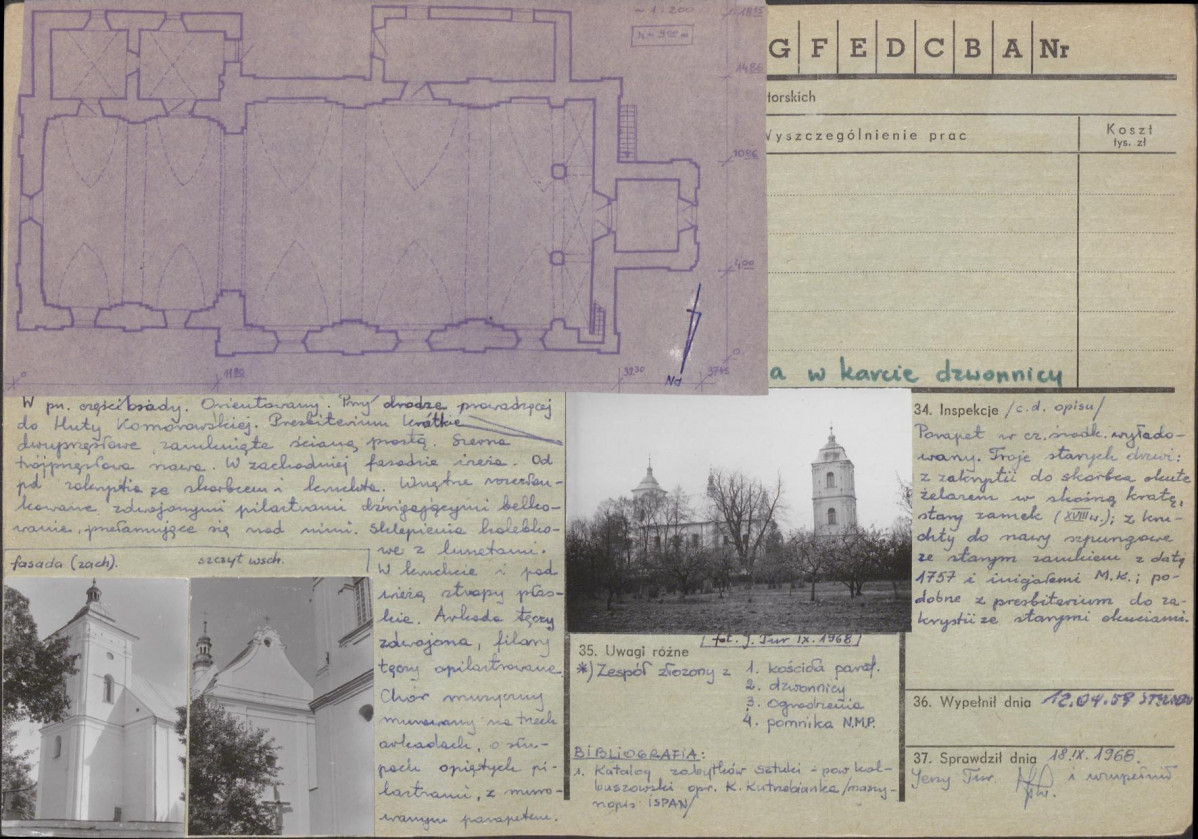 ~ 1:200
1815
1486
1086
400
0
0
1180
3230
3745
Nd
G F E D C B A Nr
torskich
Wyszczególnienie prac
Koszt
tys. zł
a w karcie dzwonnicy
W pn. części osady. Orientowany. Przy drodze prowadzącej
do Huty Komorowskiej. Prezbiterium krótkie
dwuprzęsłowe, zamknięte ścianą prostą. Szersza
trójprzęsłowa nawa. W zachodniej fasadzie wieża. Od
pd zakrystia ze skarbcem i kruchta. Wnętrze rozczłon-
kowane zdwojonymi pilastrami dźwigającymi belko-
wanie, przełamujące się nad nimi. Sklepienia kolebko-
we z lunetami.
W kruchcie i pod
wieżą stropy płas-
kie. Arkada tęczy
zdwojona, filary
tęczy opilastrowane.
Chór muzyczny
murowany na trzech
arkadach, o słu-
pach opiętych pi-
lastrami, z muro-
wanym parapetem.
fasada (zach).
szczyt wsch.
[fot. J. Tur IX. 1968]
35. Uwagi różne
*) Zespół złożony z 1. kościoła paraf.
2. dzwonnicy
3. ogrodzenia
4. pomnika N.M.P.
BIBLIOGRAFIA:
1. Katalog zabytków sztuki - pow. kol-
buszowski opr. K. Kutrzebianka /maszy-
nopis ISPAN/
34. Inspekcje /c.d. opisu/
Parapet w cz. środk. wyłado-
wany. Troje starych drzwi:
z zakrystii do skarbca okute
żelazem w skośną kratę,
stary zamek (XVIII w.); z kru-
chty do nawy szpungowe
ze starym zamkiem z datą
1757 i inicjałami M.K.; po-
dobne z prezbiterium do za-
krystii ze starymi okuciami.
36. Wypełnił dnia 12.04.59
37. Sprawdził dnia 18.IX.1968
Jerzy Tur. i uzupełnił